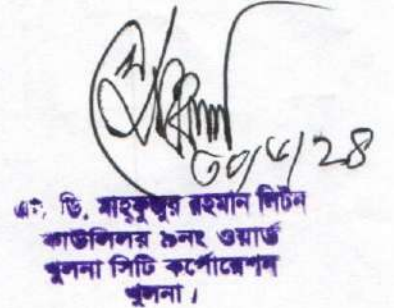 ৩০/৪/২৪
এম, ডি, মাহফুজুর রহমান লিটন
কাউন্সিলর ৯নং ওয়ার্ড
খুলনা সিটি কর্পোরেশন
খুলনা।